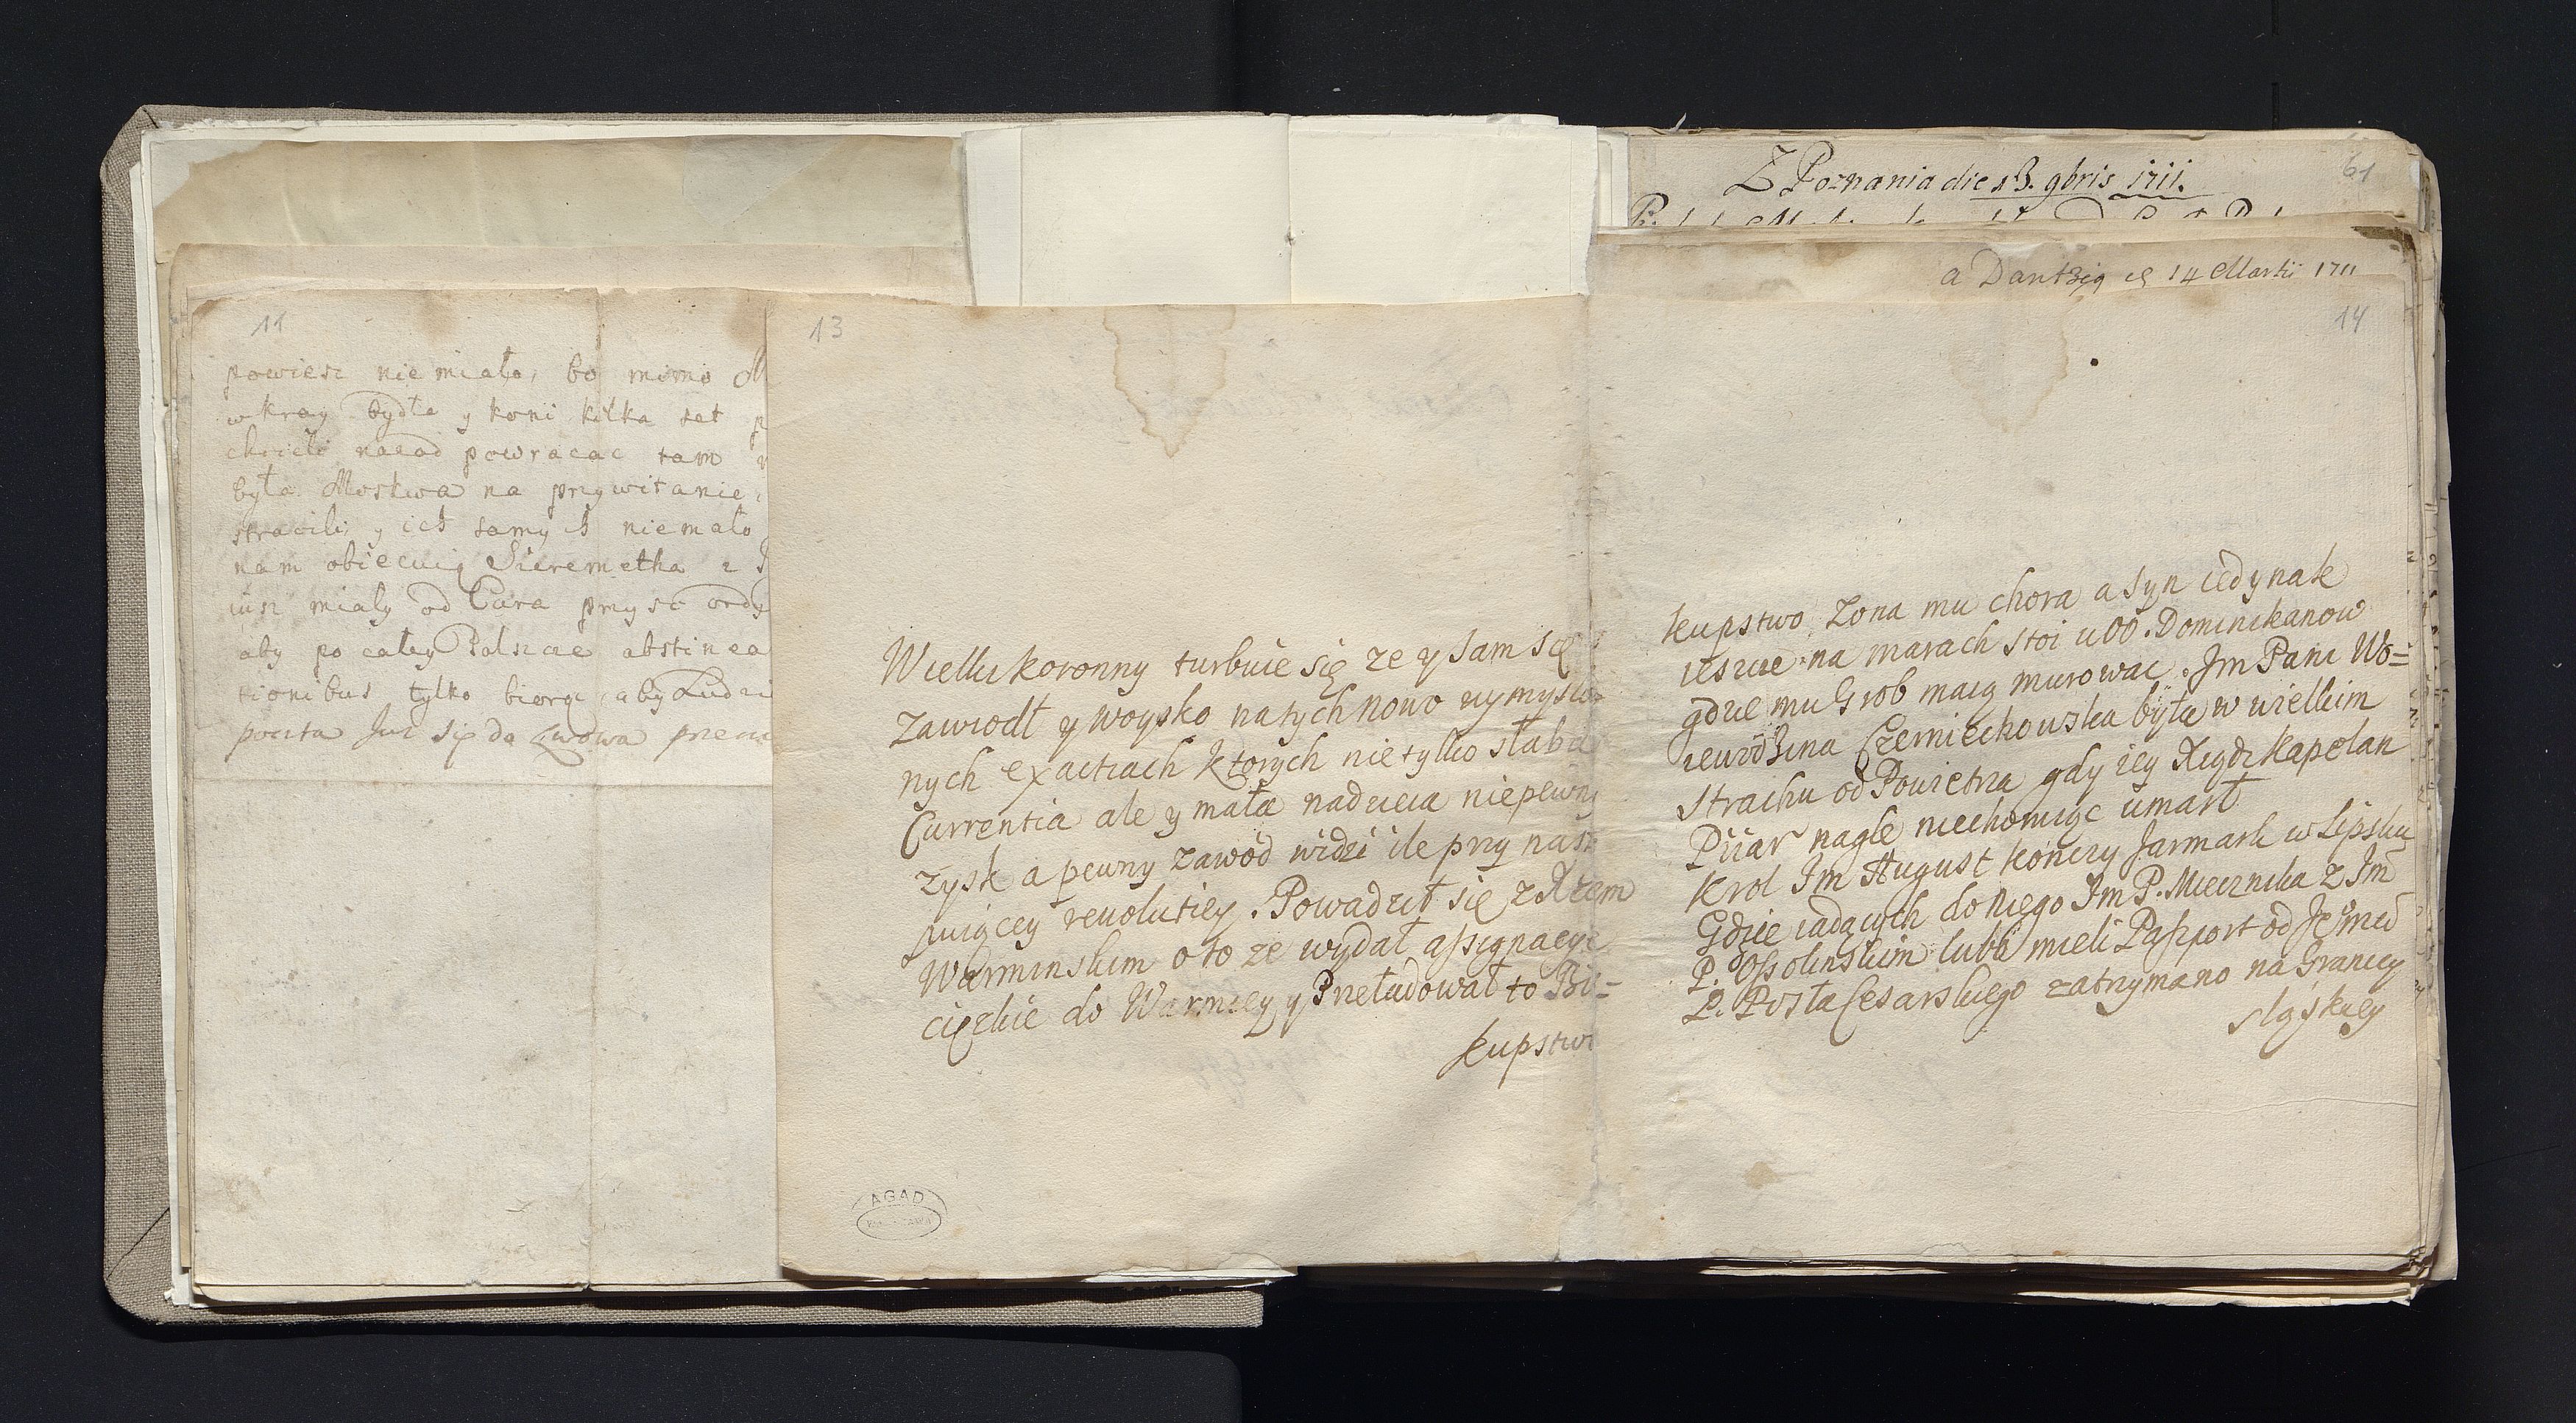 11
powiesc nie miało, bo mimo
w kray bydła y koni kilka set
chcieli nazad powracac tam
była Moskwa na przywitanie
stracili; y ich samych niemało
nam obiecuią Szeremetka z
iusz miały od Cara przyść ordy
aby po całey Polszcze abstinea
tionibus tylko biorąc, aby Ludzi
poczta Jusz się do Lwowa
13
Wielki koronny turbuie się ze y sam się
zawiodł y woysko na tych nowo wymyslo-
nych exactiach ktorych nie tylko słaba
Currentia ale y mała nadzieia niepewny
zysk a pewny zawod widzi ile przy nast
puiącey revolutiey. Powadził się z Xzem
Warminskim o to ze wydał assignacye
cięzkie do Warmiey y Przeładował to Bis=
kupstwo
AGAD
Z Poznania die 13. 9bris 1711.
61
a Dantzig 14 Martii 1711
14
kupstwo, Zona mu chora a syn iedynak
ieszcze na marach stoi u OO. Dominikanow
gdzie mu Grob maią murowac. Jm Pani Wo=
iewodzina Czerniechowska była w wielkim
strachu od Powietrza gdy iey Xiądz kapelan
Piiar nagle niechoruiąc umarł
Krol Jm August kończy Jarmark w Lipsku
Gdzie iadących do niego Jm P. Miecznika z Jm
P. Ossolinskim lubo mieli Paszport od
P. Posła Cesarskiego zatrzymano na Granicy
sląskiey